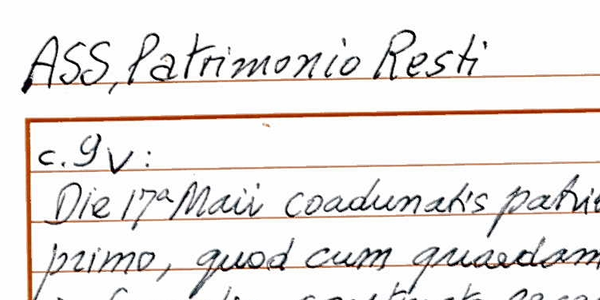 ASS, Patrimonio Resti
c. 9v:
Die 17ª Maii coadunatis
primo, quod cum quaedam